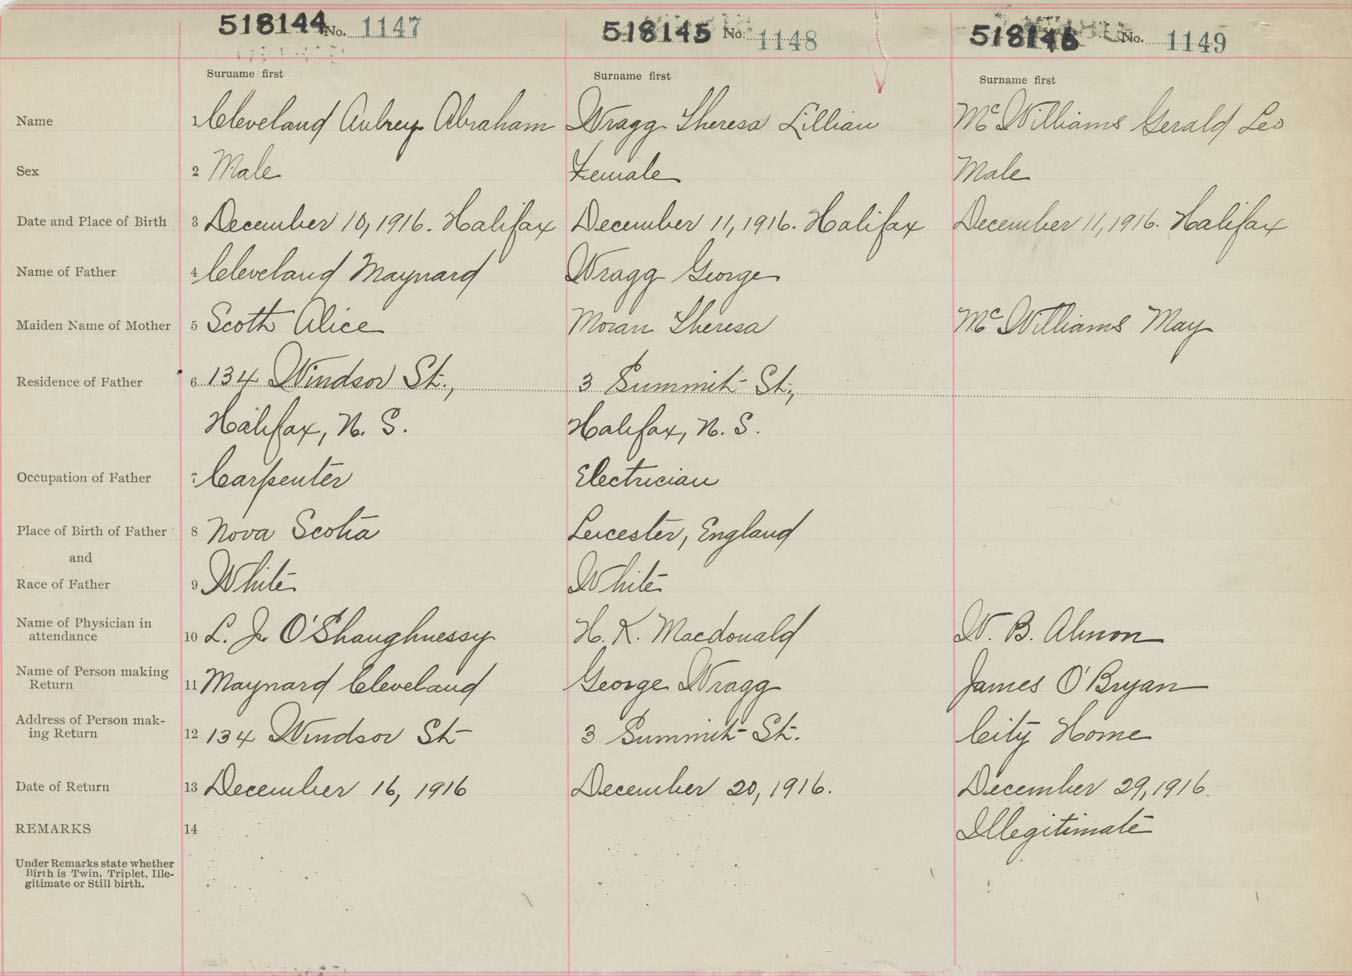 518144 No. 1147 518145 No. 1148 518146 No. 1149
Surname first Surname first Surname first
Name 1 Cleveland Aubrey Abraham Wragg Theresa Lillian McWilliams Gerald Leo
Sex 2 Male Female Male
Date and Place of Birth 3 December 10, 1916. Halifax December 11, 1916. Halifax December 11, 1916. Halifax
Name of Father 4 Cleveland Maynard Wragg George
Maiden Name of Mother 5 Scott Alice Moran Theresa McWilliams May
Residence of Father 6 134 Windsor St., 3 Summit St.,
Halifax, N. S. Halifax, N. S.
Occupation of Father 7 Carpenter Electrician
Place of Birth of Father 8 Nova Scotia Leicester, England
and
Race of Father 9 White White
Name of Physician in
attendance 10 L. J. O'Shaughnessy H. K. Macdonald W. B. Almon
Name of Person making
Return 11 Maynard Cleveland George Wragg James O'Bryan
Address of Person mak-
ing Return 12 134 Windsor St 3 Summit St. City Home
Date of Return 13 December 16, 1916 December 20, 1916. December 29, 1916.
REMARKS 14 Illegitimate
Under Remarks state whether
Birth is Twin, Triplet, Ille-
gitimate or Still birth.